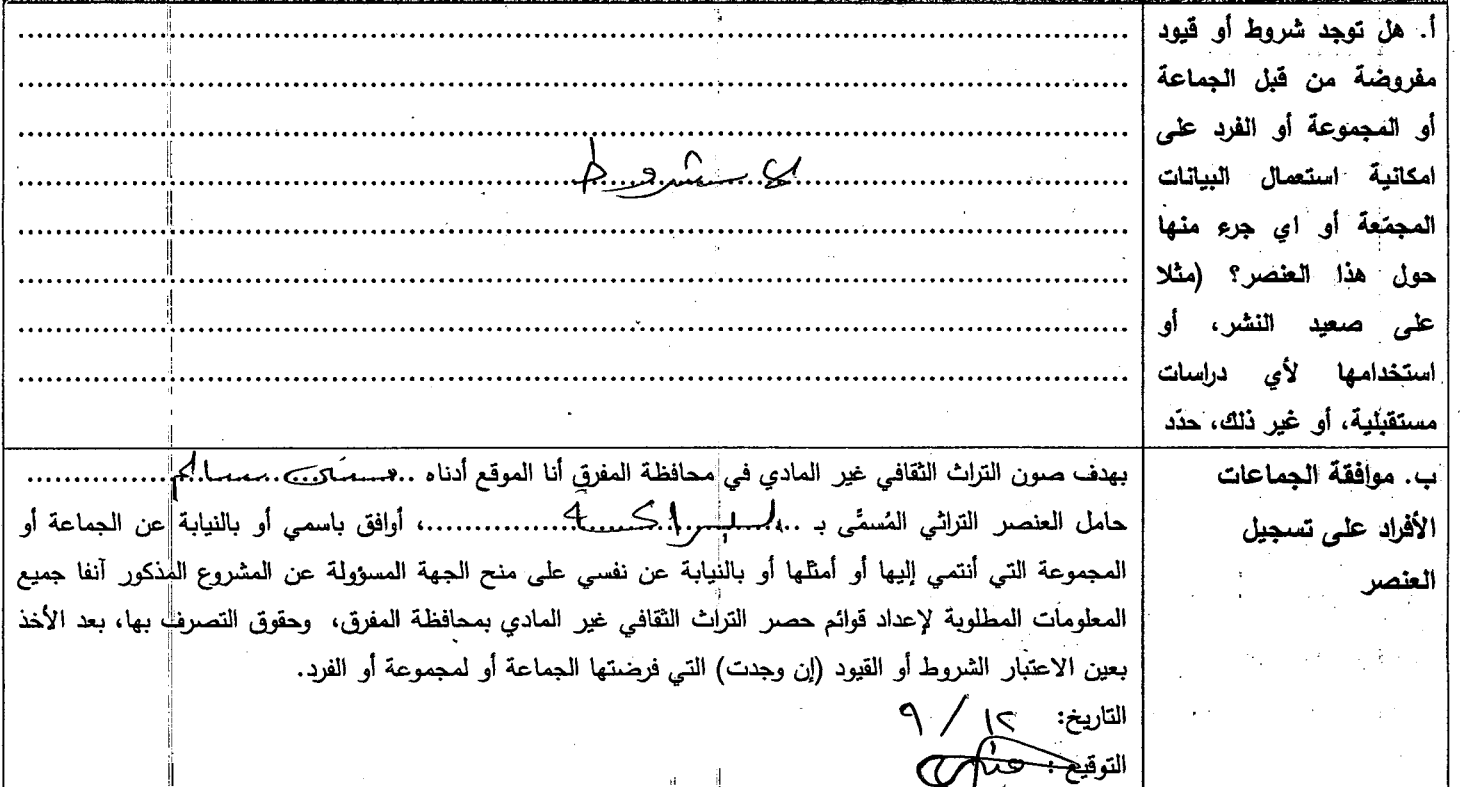 أ. هل توجد شروط أو قيود
مفروضة من قبل الجماعة
أو المجموعة أو الفرد على
امكانية استعمال البيانات
المجمّعة أو اي جرء منها
حول هذا العنصر؟ (مثلا
على صعيد النشر، أو
استخدامها لأي دراسات
مستقبلية، أو غير ذلك، حدّد
لا شروط
ب. موافقة الجماعات
الأفراد على تسجيل
العنصر
بهدف صون التراث الثقافي غير المادي في محافظة المفرق أنا الموقع أدناه
حامل العنصر التراثي المُسمَّى بـ ................، أوافق باسمي أو بالنيابة عن الجماعة أو
المجموعة التي أنتمي إليها أو أمثلها أو بالنيابة عن نفسي على منح الجهة المسؤولة عن المشروع المذكور آنفا جميع
المعلومات المطلوبة لإعداد قوائم حصر التراث الثقافي غير المادي بمحافظة المفرق، وحقوق التصرف بها، بعد الأخذ
بعين الاعتبار الشروط أو القيود (إن وجدت) التي فرضتها الجماعة أو لمجموعة أو الفرد.
التاريخ: ١٢ / ٩
التوقيع: